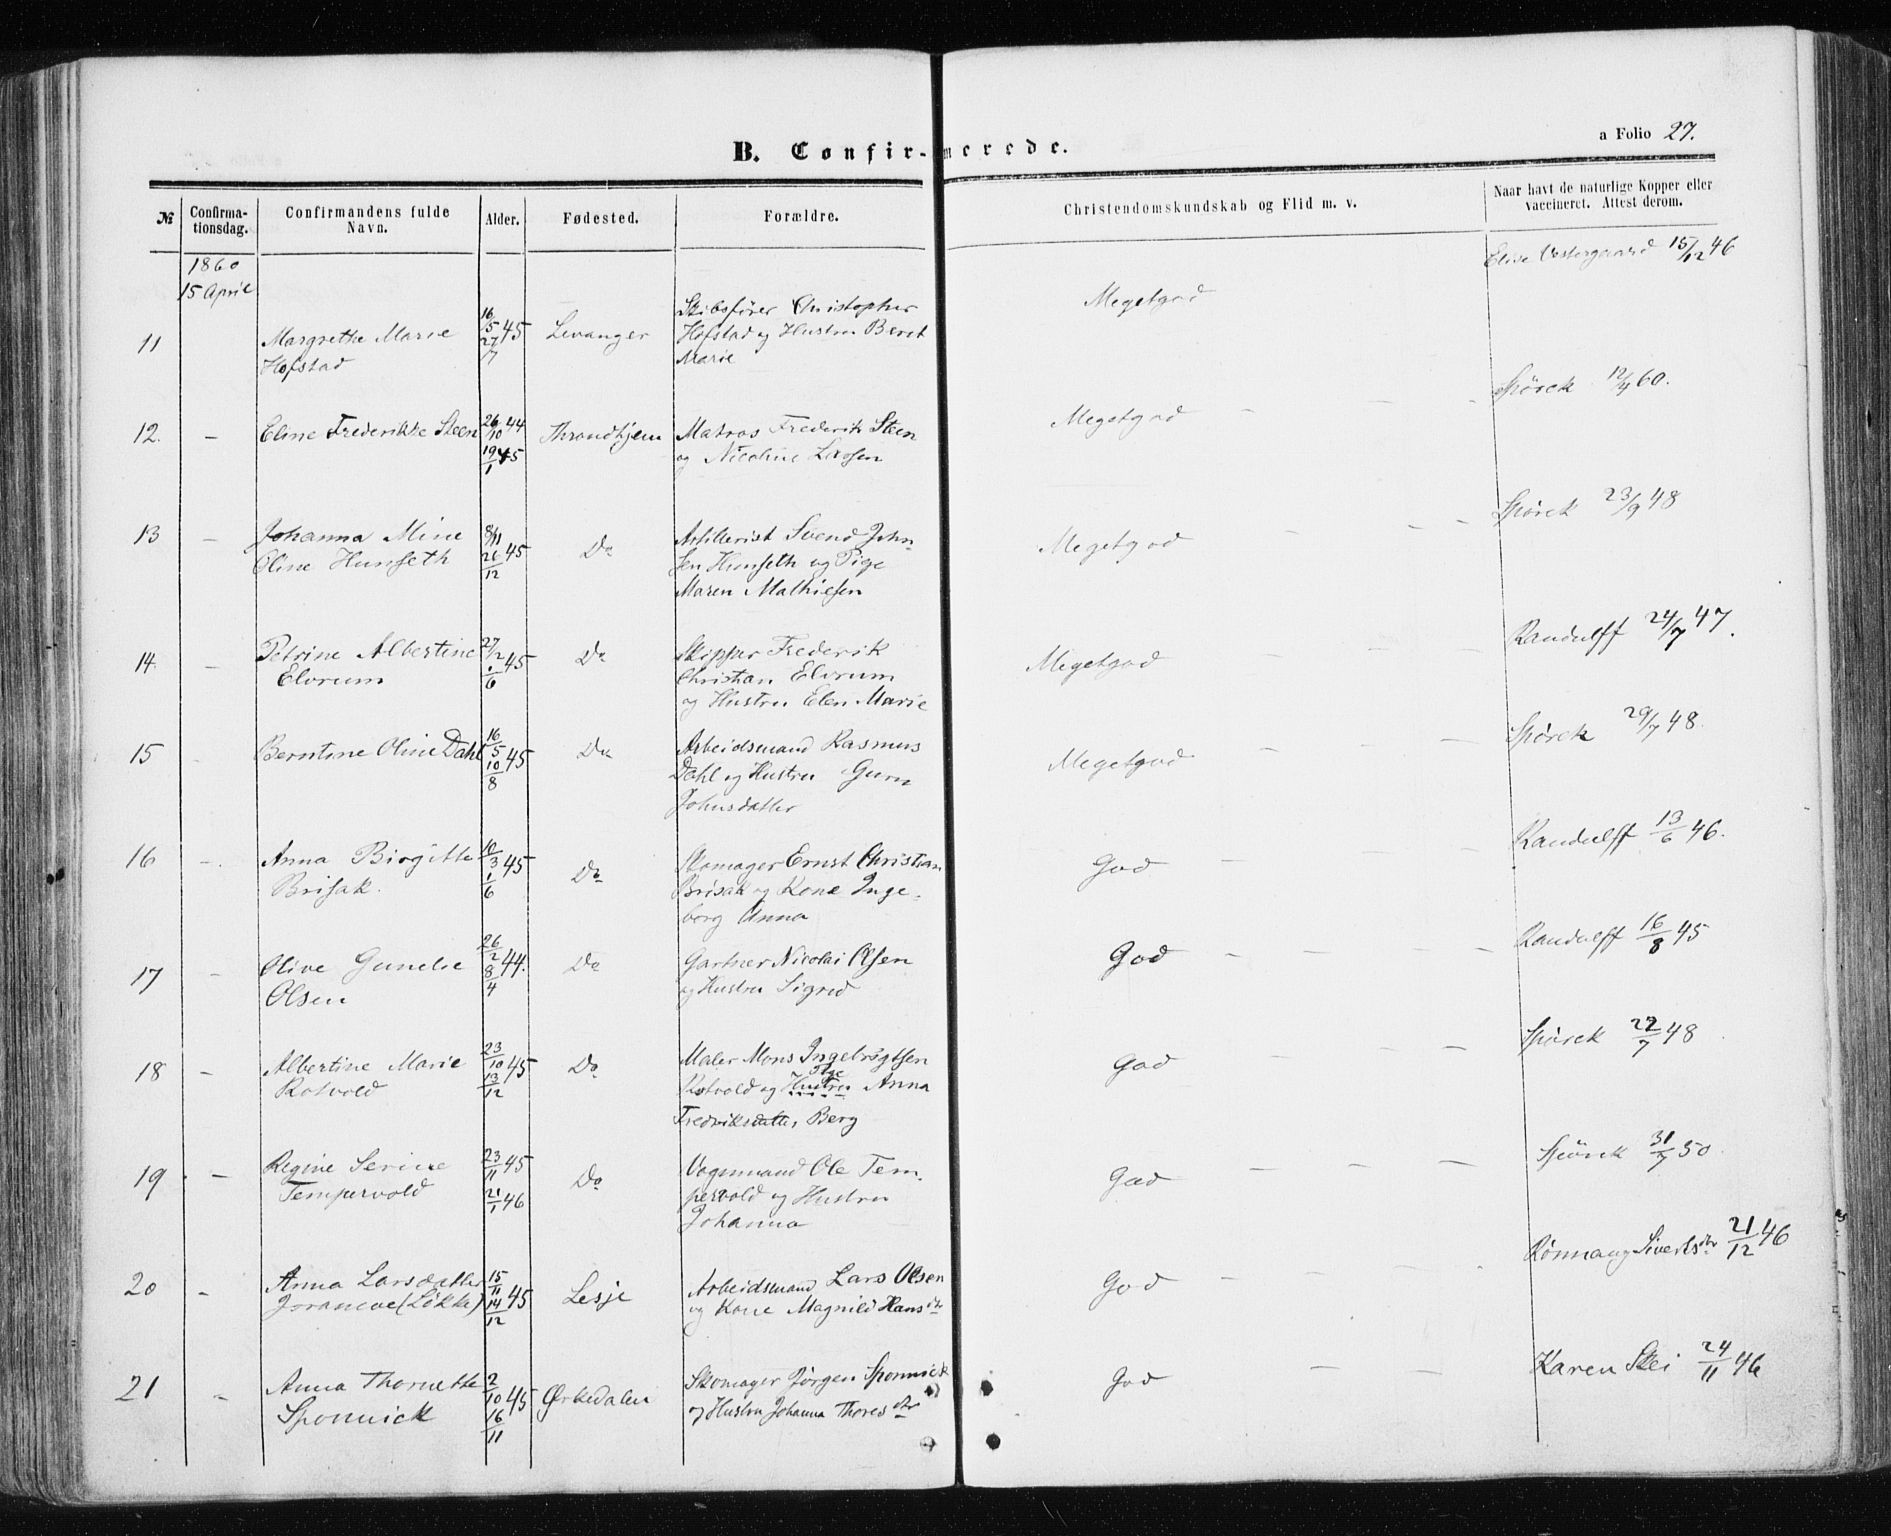 a Folio 27.
B. Confirmerede.
№
Confirma-
tionsdag.
Confirmandens fulde
Navn.
Alder.
Fødested.
Forældre.
Christendomskundskab og Flid m. v.
Naar havt de naturlige Kopper eller
vaccineret. Attest derom.
1860
15 April
11
Margrethe Marie
Hofstad
16/5 45
27/7
Levanger
Skibsfører Christopher
Hofstad og Hustru Beret
Marie
Megetgod
Elise Vestergaard 15/12 46
12.
–
Eline Frederikke Steen
26/10 44
19/1 45
Throndhjem
Matros Frederik Steen
og Nicoline
Megetgod – – –
Spörck 12/4 60.
13
–
Johanna Mine
Oline Hunseth
8/11
26/12 45
Do
Artillerist Svend John-
sen Hunseth og Pige
Maren Mathiesen
Megetgod – – –
Spörck 23/9 48
14.
–
Petrine Albertine
Elvrum
27/2 45
1/6
Do
Skipper Frederik
Christian Elvrum
og Hustru Elen Marie
Megetgod – – –
Randulff 24/7 47.
15
–
Berntine Oline Dahl
16/5 45
10/8
Do
Arbeidsmand Rasmus
Dahl og Hustru Guru
Johnsdatter
Megetgod – – –
Spörck 29/7 48.
16
–
Anna Birgitte
Brisak.
10/3 45
1/6
Do
Skomager Ernst Christian
Brisak og Kone Inge-
borg Anna
God – – –
Randulff 13/6 46.
17
–
Olive Gunelie
Olsen
26/2 44.
8/4
Do
Gartner Nicolai Olsen
og Hustru Sigrid
God – – –
Randulff 16/8 45
18
–
Albertine Marie
Rotvold
23/10 45
13/12
Do
Maler Mons Ingebrigtsen
Pige
Rotvold og Hustru Anna
Fredriksdatter Berg
God – – –
Spörck 22/7 48
19
–
Regine Serine
Tempervold
23/11 45
21/1 46
Do
Vognmand Ole Tem-
pervold og Hustru
Johanna
God – – –
Spörck 31/7 50.
20
–
Anna Larsdatter
(Løkke)
15/11 45
14/12
Lesje
Arbeidsmand Lars Olsen
og Kone Magnild Hansdtr
God – – –
Rönnaug Sivertsdtr 21/12 46
21
–
Anna Thornette
Sponnick
2/10 45
16/11
Ørkedalen
Skomager Jørgen Sponnick
og Hustru Johanna Thoresdtr
God – –
Karen Skei 24/11 46